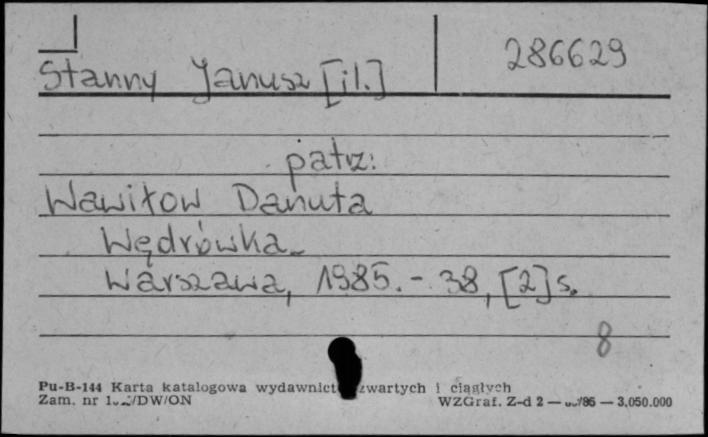 286629
Stanny Janusz [il.]
patrz:
Wawiłow Danuta
Wędrówka.
Warszawa, 1985. - 38, [2] s.
8
Pu-B-144 Karta katalogowa wydawnictw zwartych i ciągłych
Zam. nr /DW/ON
WZGraf. Z-d 2 — /86 — 3,050.000